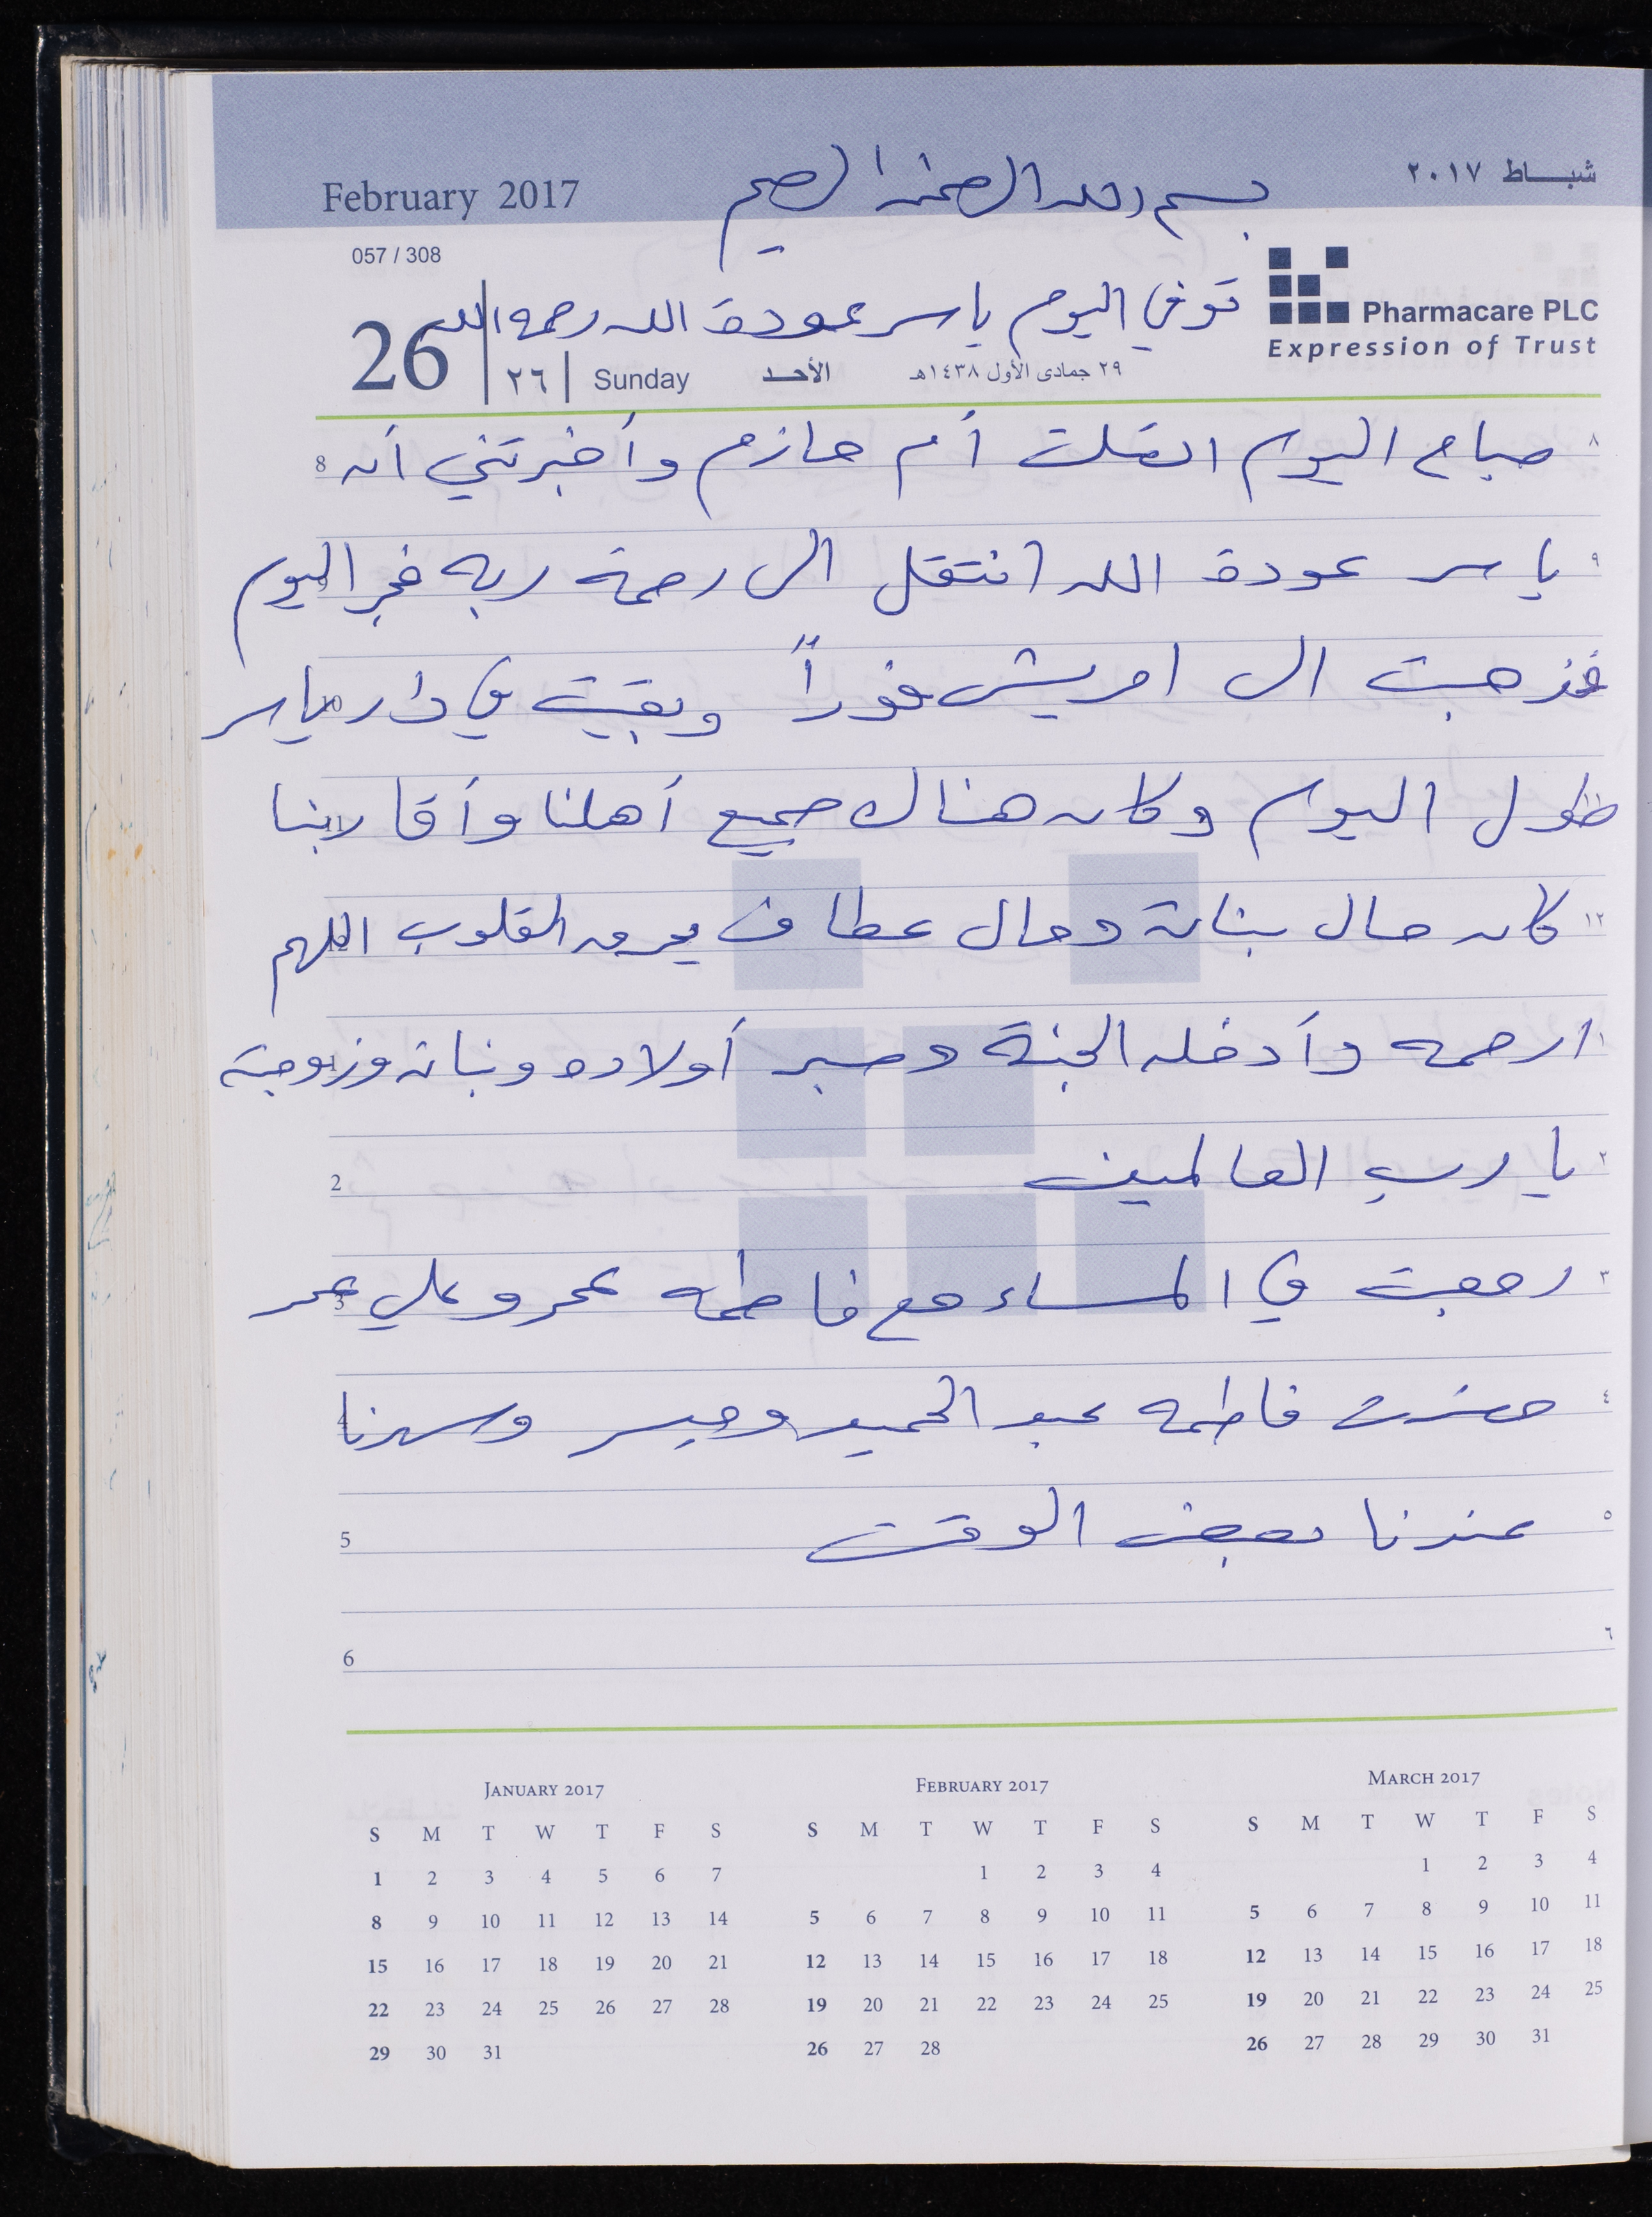 شباط ٢٠١٧
بسم الله الرحمن الرحيم
February 2017
057 / 308
Pharmacare PLC
Expression of Trust
توفي اليوم ياسر عودة الله رحمه الله
26 ٢٦ Sunday الأحد ٢٩ جمادى الأول ١٤٣٨هـ
٨ صباح اليوم اتصلت أم حازم وأخبرتني أن 8
٩ ياسر عودة الله انتقل الى رحمة ربه فجر اليوم
فذهبت الى امريش فوراً وبقيت في دار ياسر
طول اليوم وكان هناك جميع أهلنا وأقاربنا
١٢ كان حال بناته وحال عطاف يحرق القلوب اللهم
١ ارحمه وأدخله الجنة وصبر أولاده وبناته وزوجته
٢ يا رب العالمين 2
٣ رجعت في المساء مع فاطمه عمرو علي عمر 3
٤ حضرت فاطمه عبد الحميد وميسر وسهرنا 4
٥ عندنا بعض الوقت 5
٦ 6
JANUARY 2017
S M T W T F S
1 2 3 4 5 6 7
8 9 10 11 12 13 14
15 16 17 18 19 20 21
22 23 24 25 26 27 28
29 30 31
FEBRUARY 2017
S M T W T F S
1 2 3 4
5 6 7 8 9 10 11
12 13 14 15 16 17 18
19 20 21 22 23 24 25
26 27 28
MARCH 2017
S M T W T F S
1 2 3 4
5 6 7 8 9 10 11
12 13 14 15 16 17 18
19 20 21 22 23 24 25
26 27 28 29 30 31